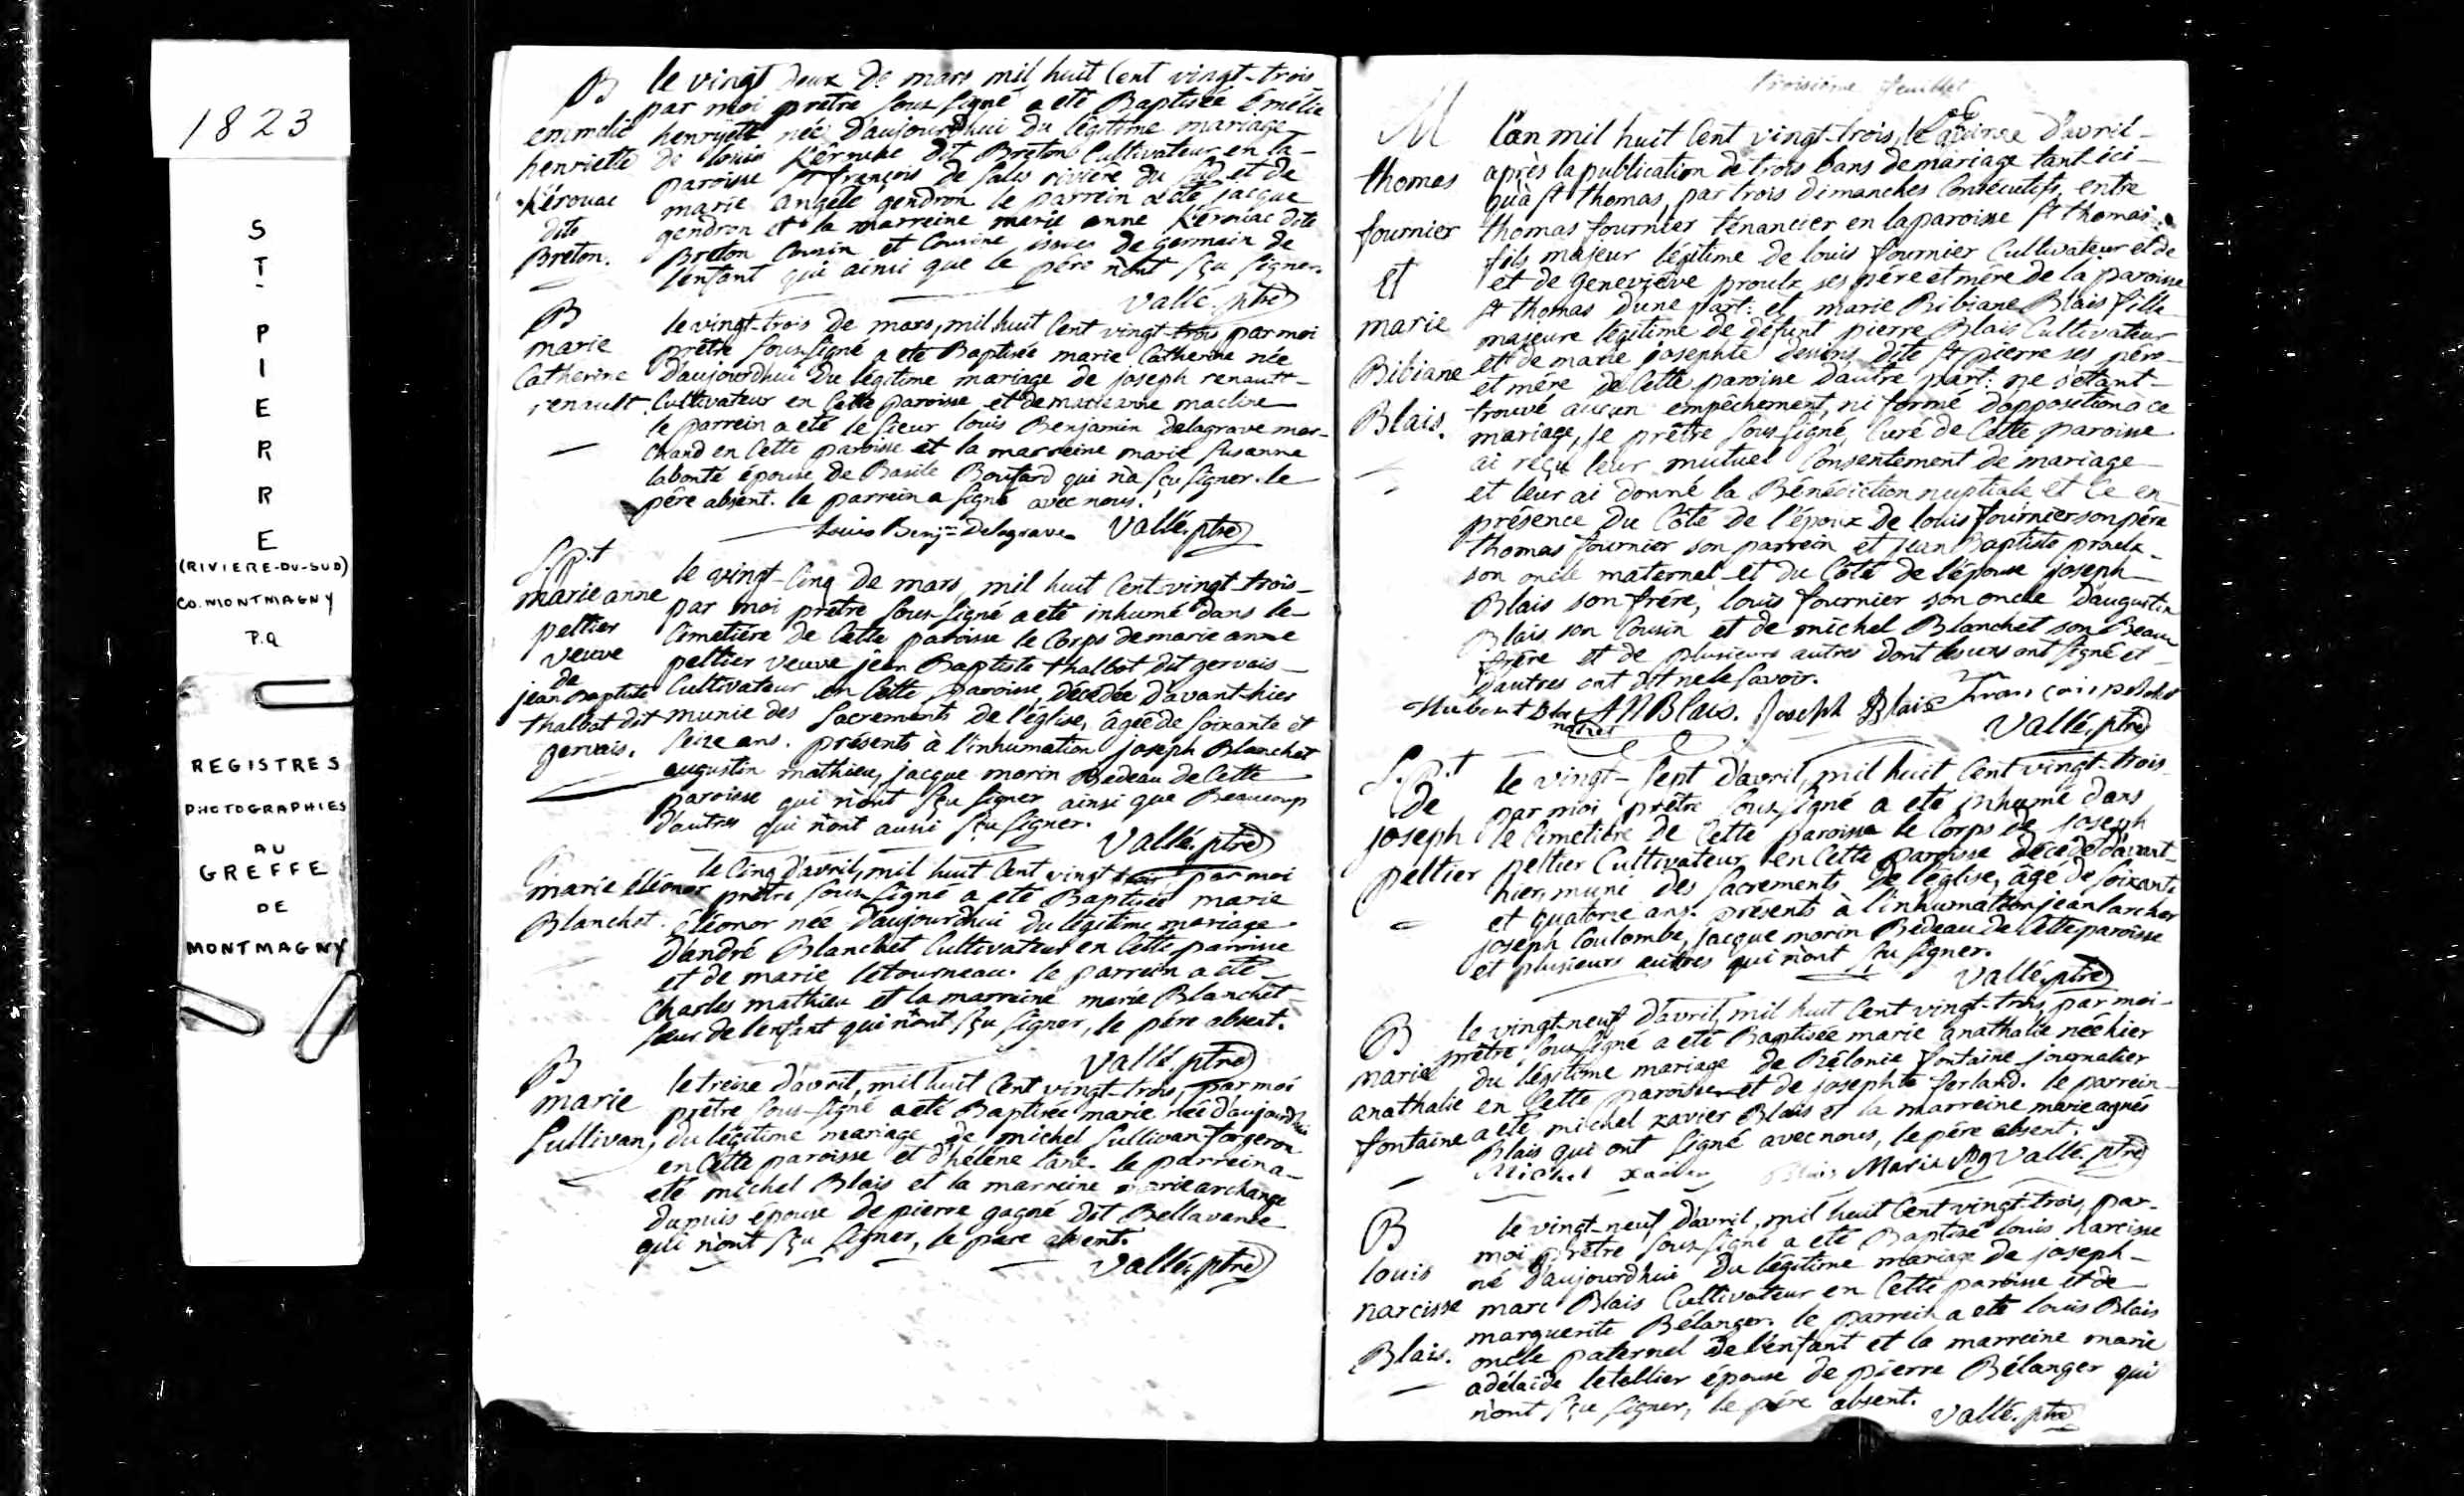 1823
ST. PIERRE
(RIVIERE-DU-SUD)
CO. MONTMAGNY
P.Q
REGISTRES
PHOTOGRAPHIES
AU
GREFFE
DE
MONTMAGNY
B
emmelie
henriette
Kérouac
dite
Breton.
le vingt deux de mars mil huit Cent vingt-trois
par moi prêtre sous signé a eté Baptisée émélie
henryette née D'aujourd'hui du légitime mariage
de louis dit Breton Cultivateur en la
paroisse St françois de sales rivière du sud et de
marie angele gendron le parrein a eté jacque
gendron et la marreine marie anne Kérouac dite
Breton Cousin et Cousine issues de germain de
l'enfant qui ainsi que le père n'ont sçu signer.
Vallé. ptre
B
marie
Catherine
renault.
le vingt-trois de mars, mil huit Cent vingt-trois par moi
prêtre sous signé a eté Baptisée marie Catherine née
D'aujourdhui Du légitime mariage de joseph renault
Cultivateur en Cette paroisse et de marieanne
le parrein a eté le sieur louis Benjamin Delagrave mar-
chand en Cette paroisse et la marreine marie susanne
labonté épouse de Basile Boufard qui n'a sçu signer. le
père absent. le parrein a signé avec nous.
Louis Benjn Delagrave Vallé. ptre
S.pt
marieanne
peltier
veuve
de
jean Baptiste
thalbot dit
gervais.
le vingt-Cinq de mars, mil huit Cent vingt-trois
par moi prêtre sous signé a eté inhumé dans le
Cimetiére de Cette paroisse le Corps de marie anne
peltier veuve jean Baptiste thalbot dit gervais
Cultivateur en Cette paroisse, décédée D'avant-hier
munie des sacrements de l'église, âgée de soixante et
seize ans. présents à l'inhumation joseph Blanchet
augustin mathieu, jacque morin Bedeau de Cette
paroisse qui n'ont sçu signer ainsi que Beaucoup
d'autres qui n'ont aussi sçu signer.
Vallé. ptre
marie éléonor
Blanchet.
le Cinq d'avril, mil huit Cent vingt trois par moi
prêtre sous signé a eté Baptisée marie
éléonor née D'aujourdhui du légitime mariage
D'andré Blanchet Cultivateur en Cette paroisse
et de marie letourneau. le parrein a eté
Charles mathieu et la marreine marie Blanchet
sœur de l'enfant qui n'ont sçu signer, le père absent.
Vallé. ptre
B
marie
Sullivan,
le treize d'avril, mil huit Cent vingt-trois, par moi
prêtre sous-signé a eté Baptisée marie née d'aujourdhui
du légitime mariage de michel Sullivan forgeron
en Cette paroisse et d'héléne l'ane. le parrein a
eté michel Blais et la marreine marie archange
Dupuis épouse de pierre gagné dit Bellavance
qui n'ont sçu signer, le père absent.
Vallé. ptre
troisième feuillet
M
thomas
fournier
et
marie
Bibiane
Blais.
l'an mil huit Cent vingt-trois, le quinze d'avril
après la publication de trois bans de mariage tant ici
qu'à St thomas, par trois dimanches Consécutifs, entre
thomas fournier tenancier en la paroisse St thomas
fils majeur légitime de louis fournier Cultivateur et de
et de geneviève proulx ses père et mère de la paroisse
St thomas d'une part: et marie Bibiane Blais fille
majeure légitime de défunt pierre Blais Cultivateur
et de marie josephte dessins dite St pierre ses père
et mère de Cette paroisse d'autre part: ne s'etant
trouvé aucun empêchement, ni formé d'opposition à ce
mariage, je prêtre sous signé, Curé de Cette paroisse
ai reçu leur mutuel Consentement de mariage
et leur ai donné la Bénédiction nuptiale et Ce en
présence du Côté de l'époux de louis fournier son père
thomas fournier son parrein et jean Baptiste proulx
son oncle maternel et du Côté de l'épouse joseph
Blais son frère, louis fournier son oncle D'augustin
Blais son Cousin et de michel Blanchet son Beau
frère et de plusieurs autres dont les uns ont signé et
d'autres ont dit ne le savoir.
Hubert ANBlais. Joseph Blais
Vallé. ptre
S.pt
De
joseph
peltier
le vingt-sept d'avril, mil huit Cent vingt-trois
par moi prêtre sous signé a eté inhumé dans
le Cimetière de Cette paroisse le Corps de joseph
peltier Cultivateur en Cette paroisse décédé d'avant-
hier, muni des sacrements de l'église, âgé de soixante
et quatorze ans. présents à l'inhumation jean larcher
joseph Coulombe, jacque morin Bedeau de Cette paroisse
et plusieurs autres qui n'ont sçu signer.
Vallé. ptre
B
marie
anathalie
fontaine
le vingt-neuf d'avril, mil huit Cent vingt-trois, par moi
prêtre sous signé a eté Baptisée marie anathalie née hier
du légitime mariage de Bélonie fontaine journalier
en Cette paroisse et de josephte ferland. le parrein
a eté michel xavier Blais et la marreine marie agnés
Blais qui ont signé avec nous, le père absent.
Michel xavier Blais Marie Vallé. ptre
B
louis
narcisse
Blais.
le vingt-neuf d'avril, mil huit Cent vingt-trois, par
moi prêtre sous signé a eté Baptisé louis narcisse
né d'aujourdhui Du légitime mariage de joseph
marc Blais Cultivateur en Cette paroisse et de
marguerite Bélanger. le parrein a eté louis Blais
oncle paternel de l'enfant et la marreine marie
adélaïde letellier épouse de pierre Bélanger qui
n'ont sçu signer, le père absent.
Vallé. ptre